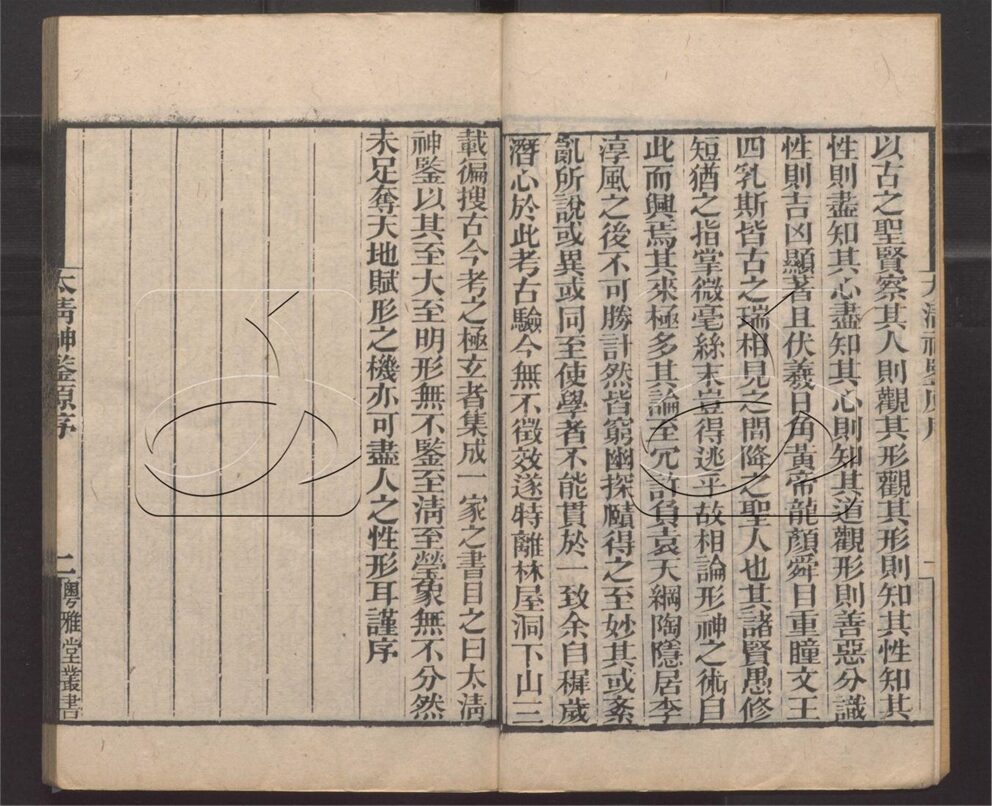 以古之聖賢察其人則觀其形觀其形則知其性知其
性則盡知其心盡知其心則知其道觀形則善惡分識
性則吉凶顯著且伏羲日角黃帝龍顏舜目重瞳文王
四乳斯皆古之瑞相見之間降之聖人也其諸賢愚修
短猶之指掌微毫絲末豈得逃乎故相論形神之術自
此而興焉其來極多其論至冗許負袁天綱陶隱居李
淳風之後不可勝計然皆窮幽探賾得之至妙其或紊
亂所說或異或同至使學者不能貫於一致余自穉歲
潛心於此考古驗今無不徵效遂特離林屋洞下山三
載徧搜古今考之極玄者集成一家之書目之曰太清
神鑒以其至大至明形無不鑒至清至瑩象無不分然
未足奪天地賦形之機亦可盡人之性形耳謹序
太清神鑒原序
二
粵雅堂叢書